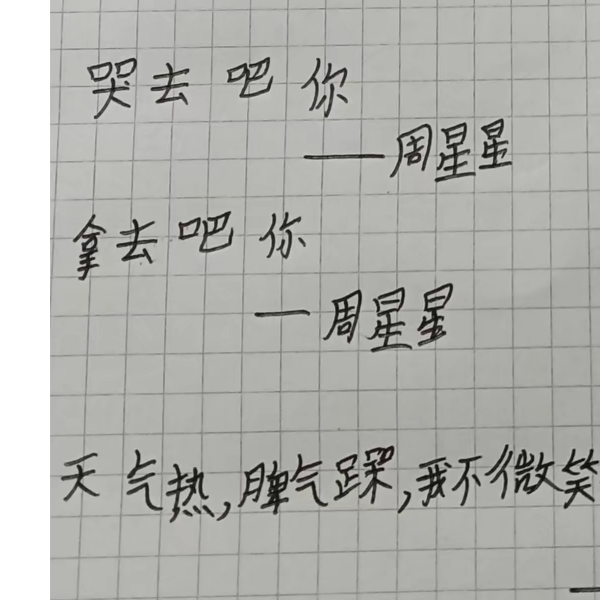 哭去吧你
——周星星
拿去吧你
—周星星
天气热,脾气躁,我不微笑